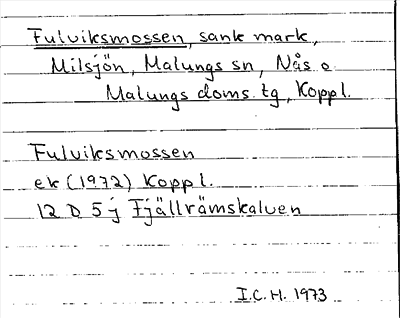 Fulviksmossen, sank mark,
Milsjön, Malungs sn, Nås o
Malungs doms. tg, Koppl.
Fulviksmossen
ek (1972) Koppl.
12 D 5 j Fjällrämskalven
I.C.H. 1973